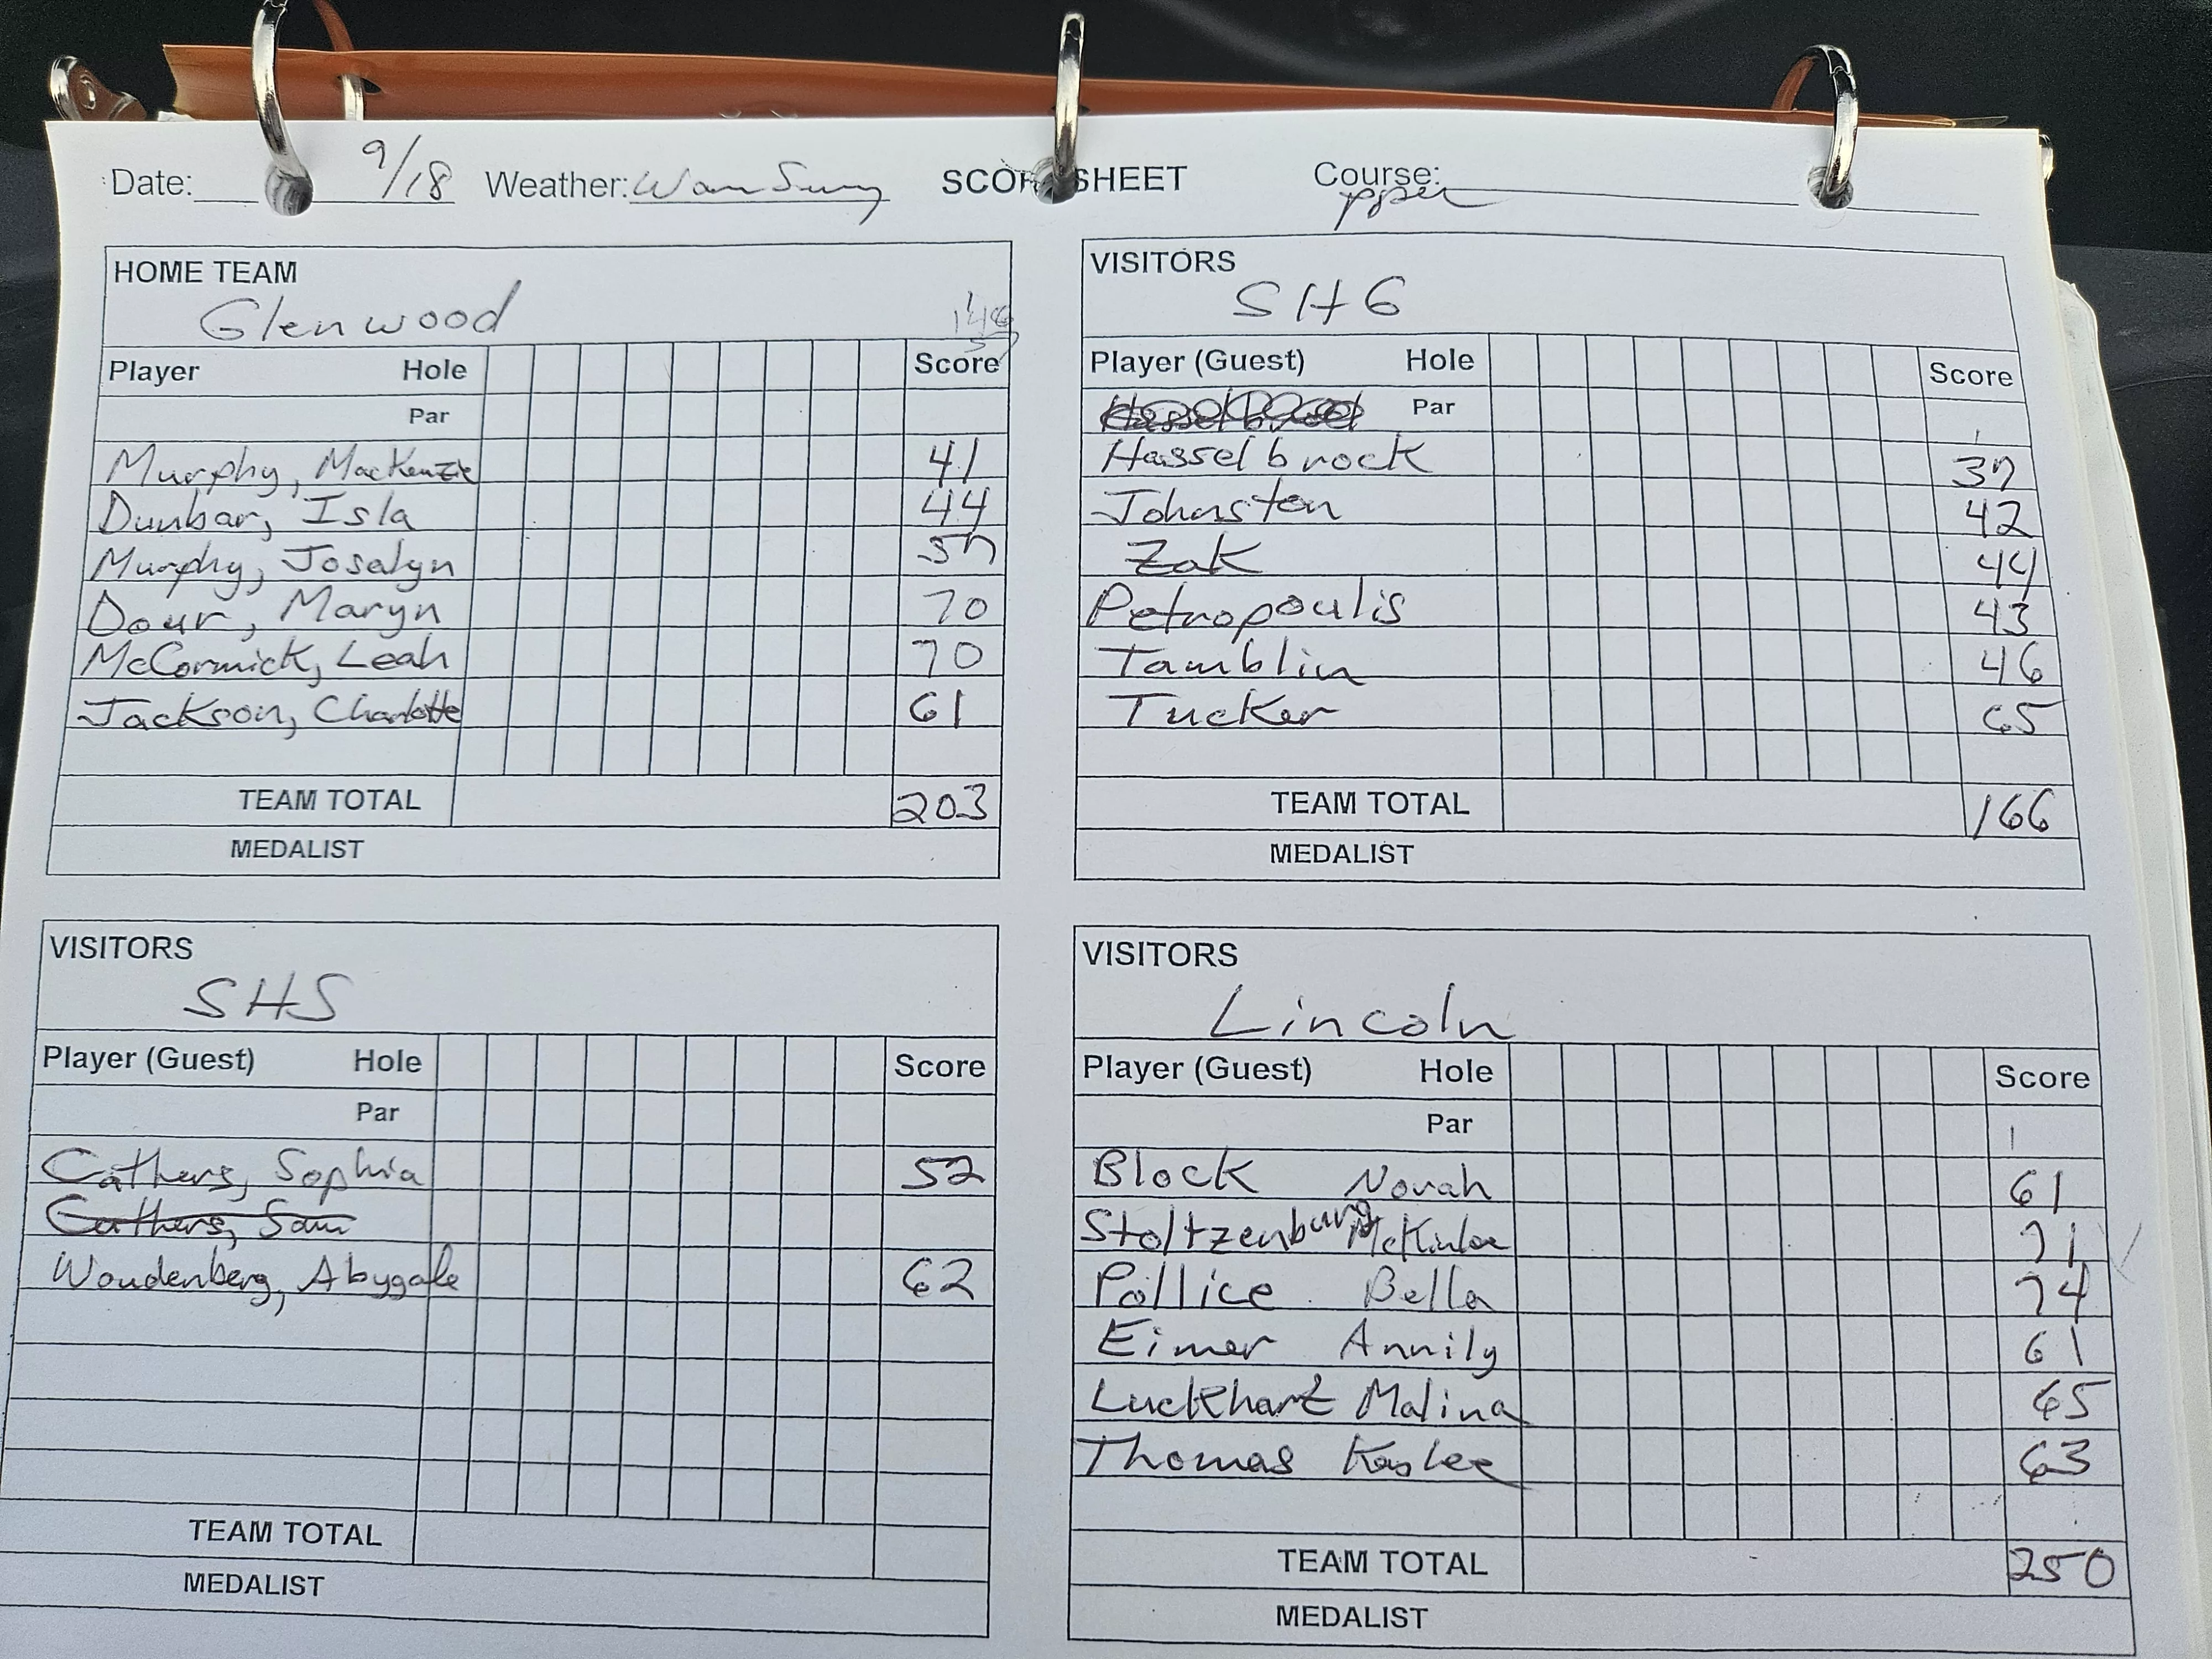 Date: 9/18 Weather: Warm Sunny SCORESHEET Course: Upper
HOME TEAM
Glenwood
146
57
Player Hole Score
Par
Murphy, MacKenzie 41
Dunbar, Isla 44
Murphy, Josalyn 57
Dour, Maryn 70
McCormick, Leah 70
Jackson, Charlotte 61
TEAM TOTAL 203
MEDALIST
VISITORS
SHG
Player (Guest) Hole Score
Par
Hasselbrock 37
Johnston 42
Zak 44
Petropoulis 43
Tamblin 46
Tucker 65
TEAM TOTAL 166
MEDALIST
VISITORS
SHS
Player (Guest) Hole Score
Par
Cathers, Sophia 52
Cathers, Sam
Woudenberg, Abygale 62
TEAM TOTAL
MEDALIST
VISITORS
Lincoln
Player (Guest) Hole Score
Par
Block Norah 61
Stoltzenburg McKinlee 71
Pollice Bella 74
Eimer Annily 61
Luckhart Malina 65
Thomas Kaylee 63
TEAM TOTAL 250
MEDALIST